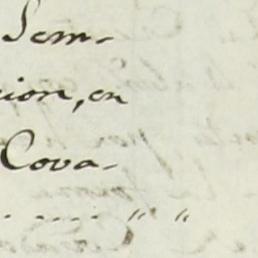 Sem-
cion, en
Cova-
. . .... " "